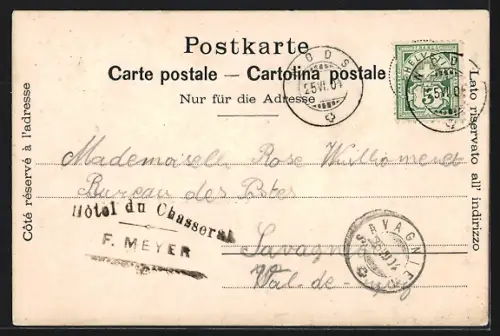 Postkarte
Carte postale — Cartolina postale
Nur für die Adresse
Côté réservé à l'adresse
Lato riservato all' indirizzo
NODS
25.VI.04
HELVETIA
5
NODS
25.VI.04
Mademoiselle Rose Wuilliomenet
Bureau des Postes
Hôtel du Chasseral
F. MEYER
Savagnier
Val-de-Ruz
SAVAGNIER